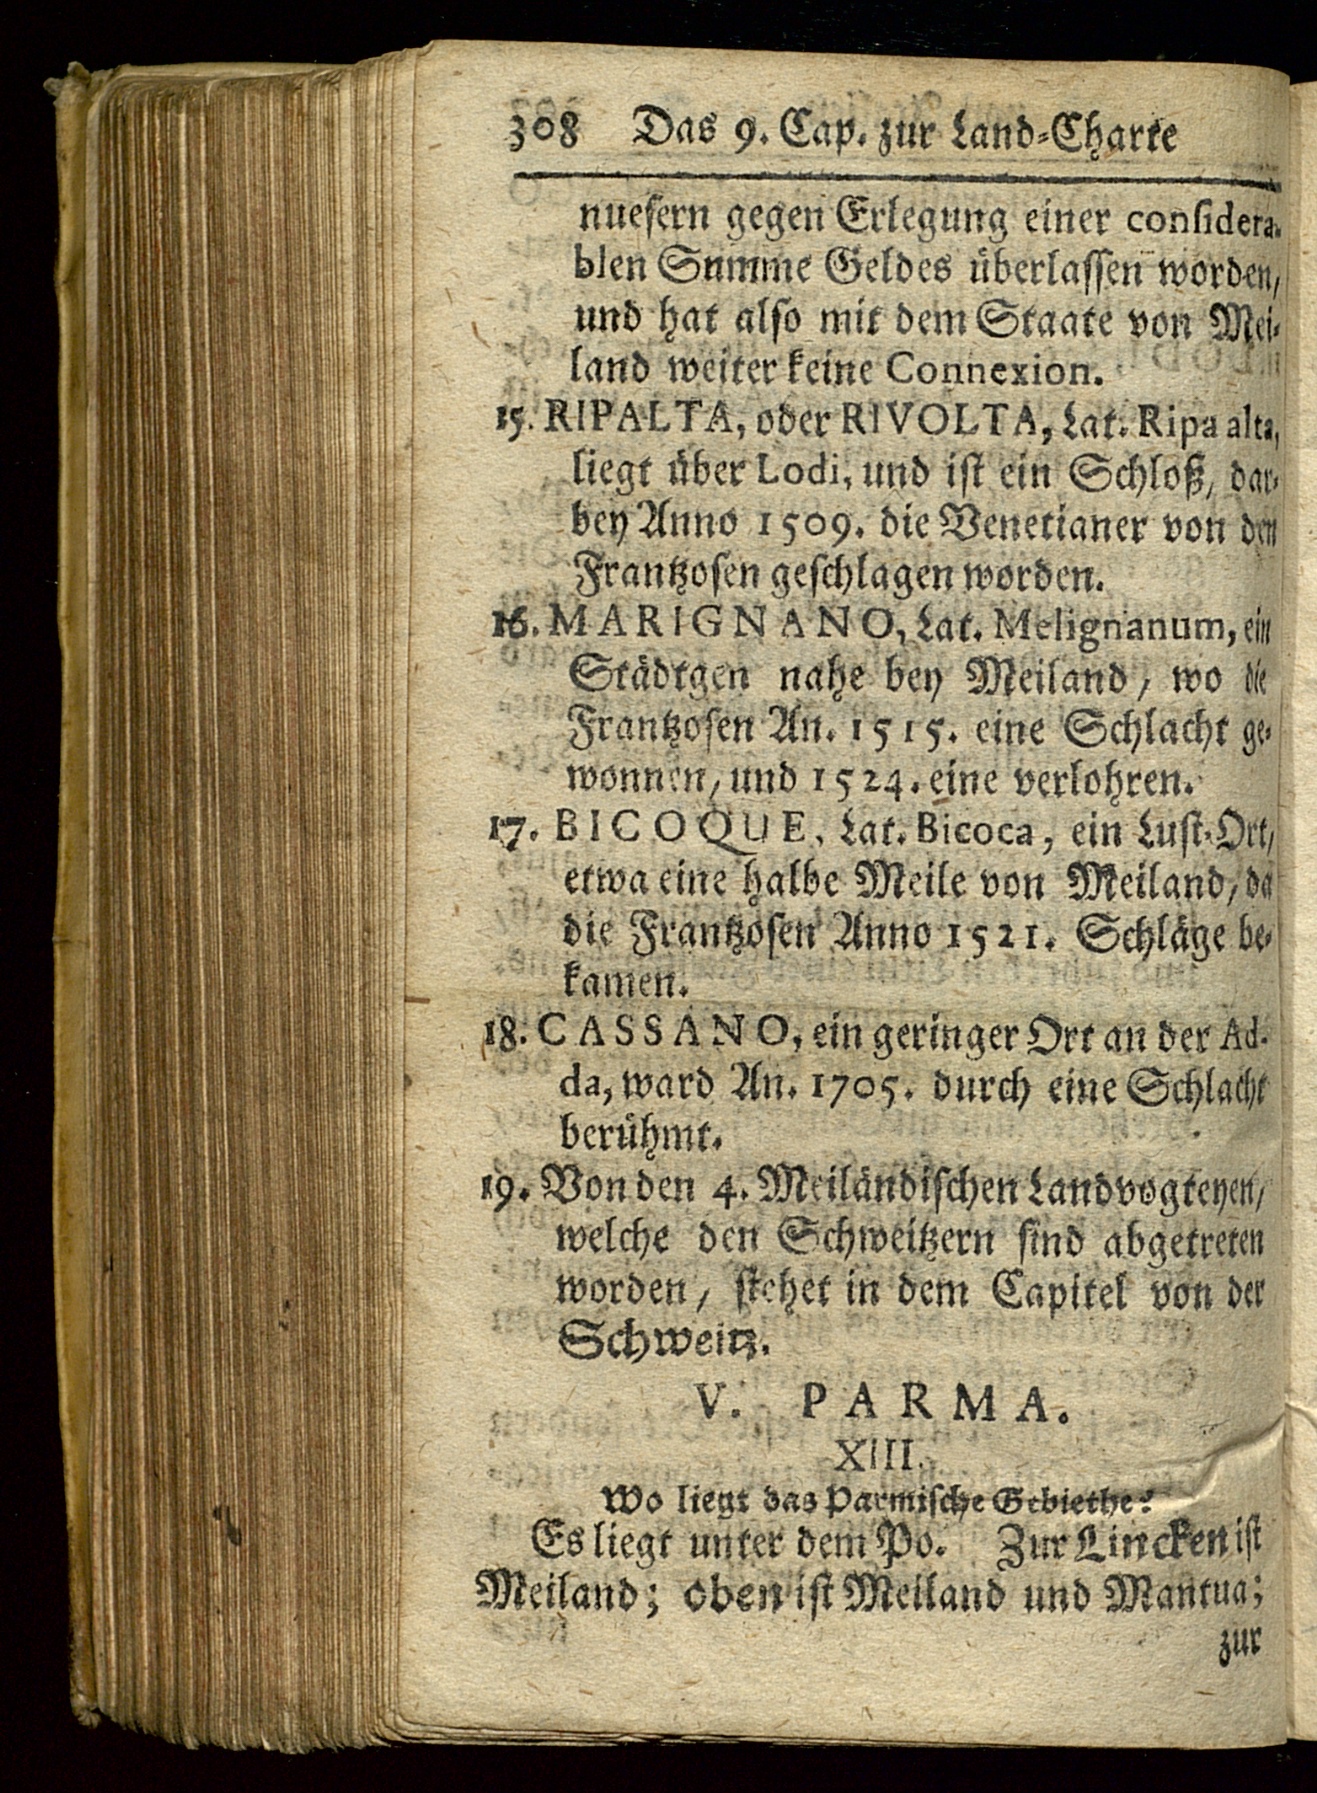 308 Das 9. Cap. zur Land-Charte
nuesern gegen Erlegung einer considera-
blen Summe Geldes überlassen worden,
und hat also mit dem Staate von Mei-
land weiter keine Connexion.
15. RIPALTA, oder RIVOLTA, Lat. Ripa alta,
liegt über Lodi, und ist ein Schloß, dar-
bey Anno 1509. die Venetianer von den
Frantzosen geschlagen worden.
16. MARIGNANO, Lat. Melignanum, ein
Städtgen nahe bey Meiland, wo die
Frantzosen An. 1515. eine Schlacht ge-
wonnen, und 1524. eine verlohren.
17. BICOQUE, Lat. Bicoca, ein Lust-Ort,
etwa eine halbe Meile von Meiland, da
die Frantzosen Anno 1521. Schläge be-
kamen.
18. CASSANO, ein geringer Ort an der Ad-
da, ward An. 1705. durch eine Schlacht
berühmt.
19. Von den 4. Meiländischen Landvogteyen,
welche den Schweitzern sind abgetreten
worden, stehet in dem Capitel von der
Schweitz.
V. PARMA.
XIII.
Wo liegt das Parmische Gebiethe?
Es liegt unter dem Po. Zur Lincken ist
Meiland; oben ist Meiland und Mantua;
zur